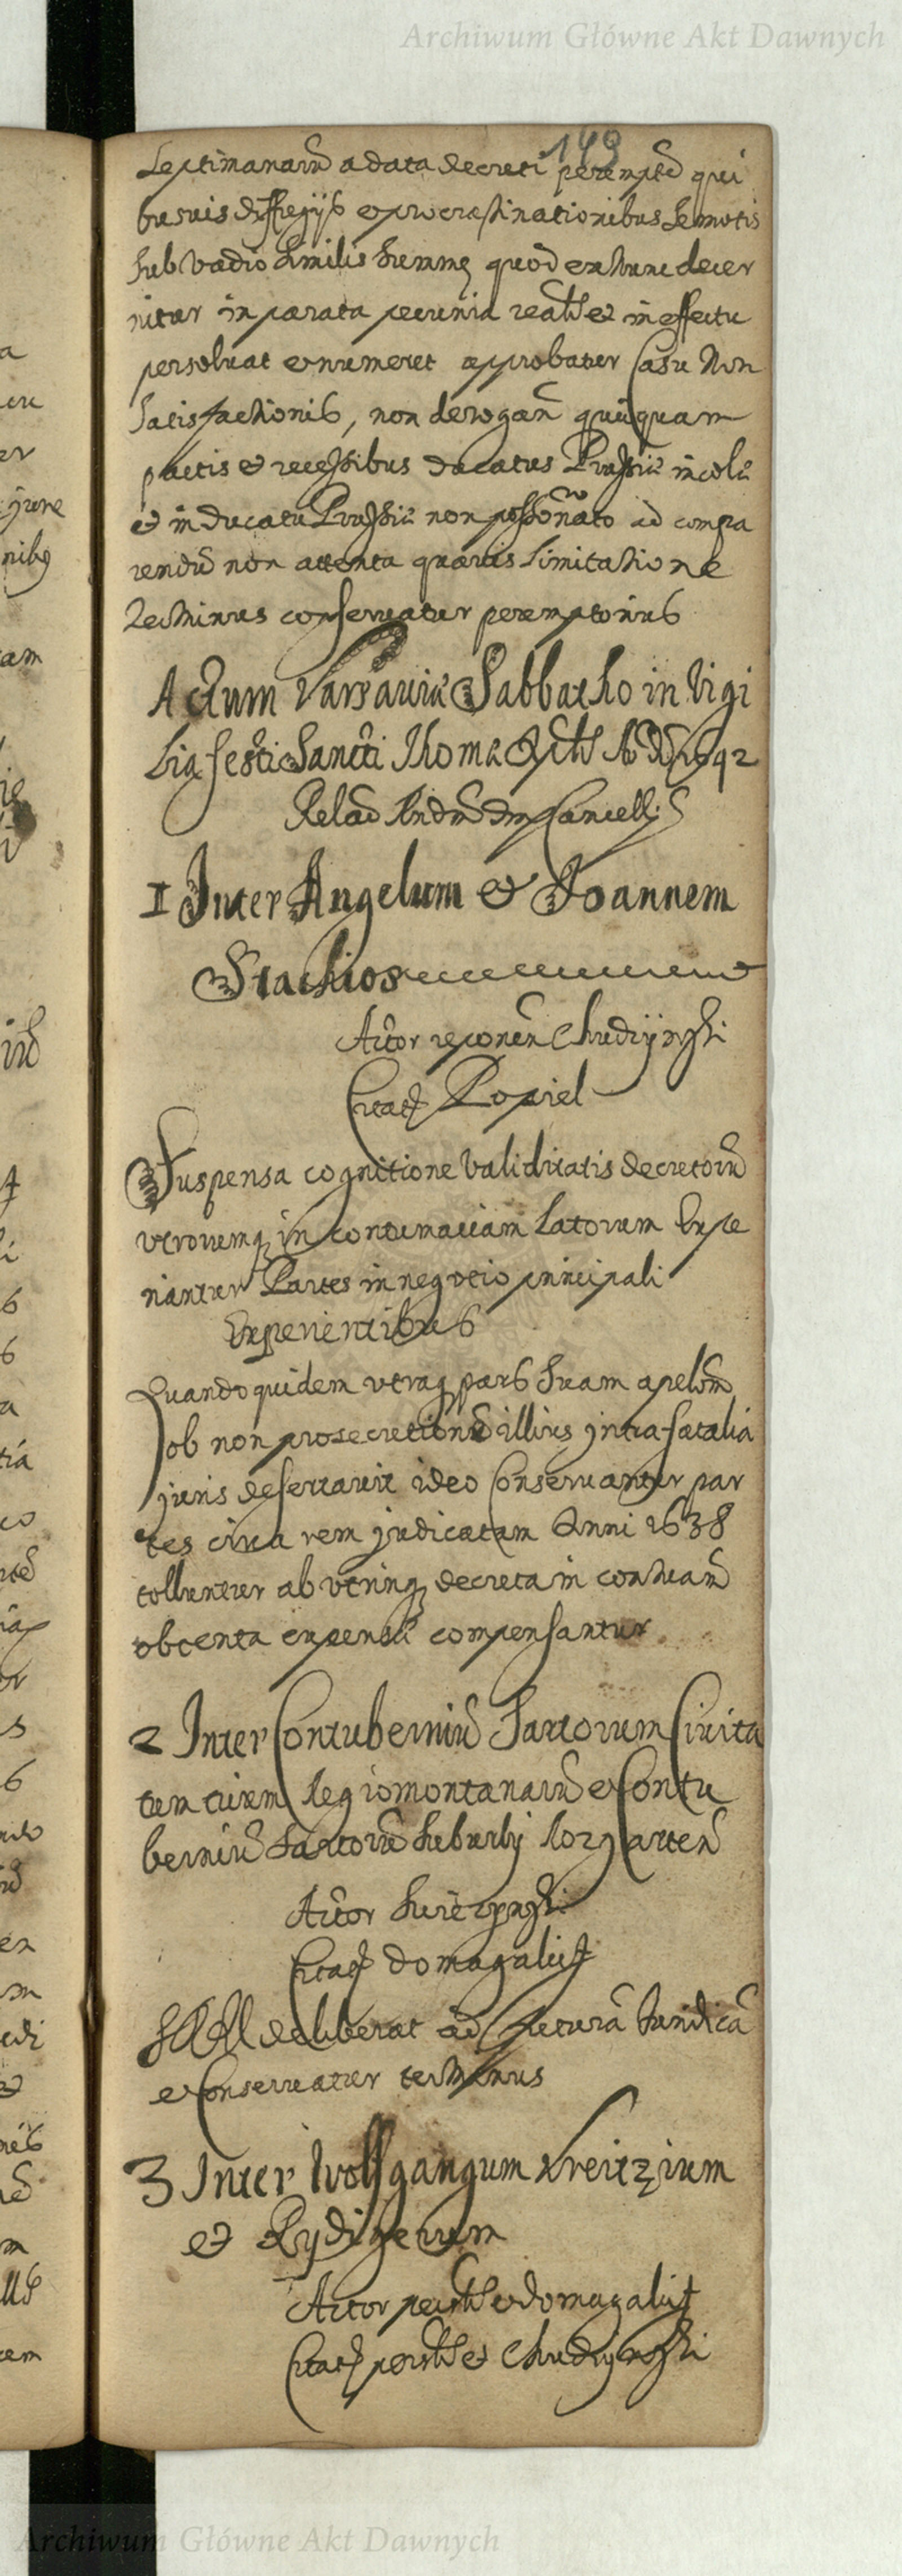 Archiwum Główne Akt Dawnych
149
septimanarũ a data decreti peremptẽ qui
busuis diffugijs et procrastinationibus semotis
sub vadio similis summę quod ex nunc decer
nitur in parata pecunia realr et in effectu
persoluat et numeret approbatur Casu Non
satisfactionis, non derogań quicquam
pactis et recessibus ducatus Prussiæ incolæ
et in ducatu Prussiæ non possõnato ad compa
rendũ non attenta quavis limitatione
terminus conservatur peremptorius
Actum Varsaviæ Sabbatho in Vigi
lia festi Sancti Thomæ Apli A D 1642
Relaõ Rndi dni Cancellÿ
1 Inter Angelum et Joannem
Stachios
Actor reponeñ Chudzÿnski
Citatq Popiel
Suspensa cognitione validitatis decretorũ
utrorumq in contumaciam latorum Expe
riantur Partes in negotio principali
Experientibus
Quandoquidem utraq pars suam apelõm
ob non prosecutionẽ illius intra fatalia
juris desertavit ideo Conservantur par
tes circa rem judicatam Anni 1638
tolluntur ab utrinq decreta in contuam
obtenta expensæ compensantur
2 Inter Contuberniũ Sartorum Civita
tum trium Regiomontanarũ et Contu
berniũ Sartorũ suburbÿ
Actor
Citatq Domagalist
SRM deliberat ad futurã Iuridicã
et Conservatur terminus
3 Inter Wolfgangum Kreitzium
et Rydigerum
Actor persolr et Domagalist
Citatq persolr et Chudzynski
Archiwum Główne Akt Dawnych